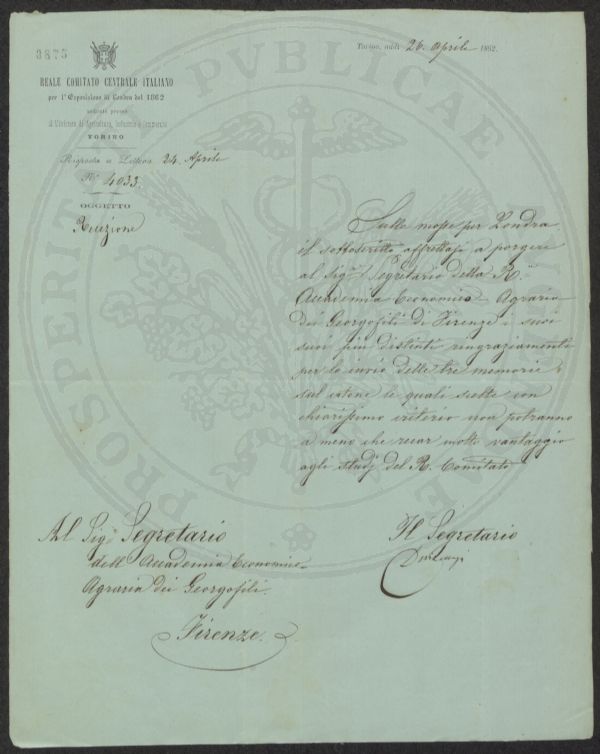 3875
Torino, addì 26. Aprile 1862.
REALE COMITATO CENTRALE ITALIANO
per l'Esposizione di Londra del 1862
sedente presso
il Ministero di Agricoltura, Industria e Commercio
TORINO
Risposta a Lettera 24. Aprile
N° 4033.
OGGETTO
Reazione
Sulle mosse per Londra
il sottoscritto affrettasi a porgere
al Sig. Segretario della R.
Accademia Economico Agraria
dei Georgofili di Firenze i suoi
suoi più distinti ringraziamenti
per lo invio delle tre memorie
sul cotone le quali scelte con
chiarissimo criterio non potranno
a meno che recar molto vantaggio
agli studj del R. Comitato
Al Sig. Segretario
dell'Accademia Economico
Agraria dei Georgofili.
Firenze.
Il Segretario
PROSPERITATI PVBLICAE